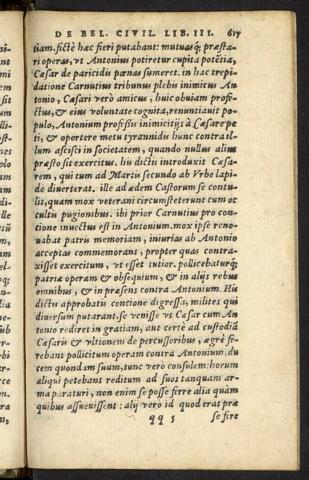 DE BEL. CIVIL. LIB. III. 617
tiam, fictè hac fieri putabant: mutuasq; præsta-
ri operas, vt Antonius potiretur cupita potẽtia,
Cæsar de paricidis pœnas sumeret. in hac trepi-
datione Carnutius tribunus plebis inimicus An
tonio, Cæsari verò amicus, huic obuiam profe-
ctus, & eius voluntate cognita, renuntiauit po-
pulo, Antonium profißis inimicitijs à Cæsare pe
ti, & oportere metu tyrannidis hunc contra il-
lum ascisci in societatem, quando nullus alius
præsto sit exercitus. his dictis introduxit Cæsa-
rem, qui tum ad Martis secundo ab Vrbe lapi-
de diuerterat. ille ad ædem Castorum se contu-
lit, quam mox veterani circumsteterunt cum oc
cultis pugionibus. ibi prior Carnutius pro con-
cione inuectus est in Antonium. mox ipse reno-
uabat patris memoriam, iniurias ab Antonio
acceptas commemorans, propter quas contra-
xisset exercitum, vt esset tutior. pollicebaturq;
patriæ operam & obsequium, & in alijs rebus
omnibus, & in præsens contra Antonium. His
dictis approbatis concione digressa, milites qui
diuersum putarant, se venisse vt Cæsar cum An
tonio rediret in gratiam, aut certè ad custodiã
Cæsaris & vltionem de percussoribus, ægrè fe-
rebant pollicitum operam contra Antonium, du
cem quondam suum, tunc verò consulem: horum
aliqui petebant reditum ad suos tanquam ar-
ma paraturi, non enim se posse ferre alia quàm
quibus assueuissent: alij verò id quod erat præ
qq 5 se fire